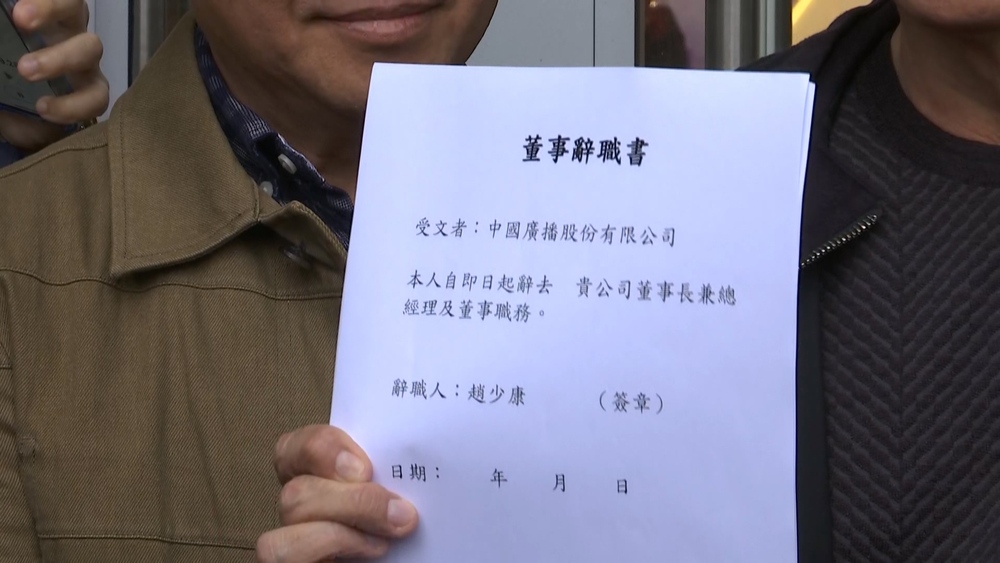 董事辭職書
受文者：中國廣播股份有限公司
本人自即日起辭去　貴公司董事長兼總
經理及董事職務。
辭職人：趙少康　　　（簽章）
日期：　　年　　月　　日